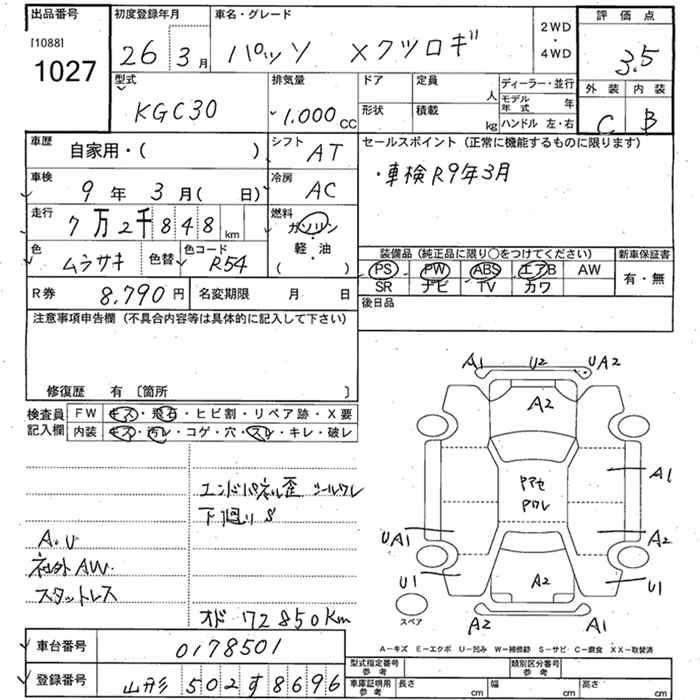 出品番号 初度登録年月 車名・グレード 2WD・4WD 評価点
[1088]
1027 26年3月 パッソ Xクツロギ 3.5
型式 排気量 ドア 定員 人 ディーラー・並行 外装 内装
KGC30 1.000cc 形状 積載 kg モデル年式 年 C B
ハンドル 左・右
車歴 自家用・( ) シフト AT セールスポイント (正常に機能するものに限ります)
車検 9年3月( 日) 冷房 AC ・車検R9年3月
走行 7万2千848km 燃料 ガソリン・軽・油 ( )
色 ムラサキ 色替 色コード R54 装備品 (純正品に限り○をつけてください) 新車保証書
PS PW ABS エアB AW 有・無
SR ナビ TV カワ
R券 8,790円 名変期限 月 日 後日品
注意事項申告欄 (不具合内容等は具体的に記入して下さい)
修復歴 有 〔箇所 〕
検査員記入欄 FW キズ・飛石・ヒビ割・リペア跡・X要
内装 キズ・汚レ・コゲ・穴・スレ・キレ・破レ
エンドパネル歪 シールワレ
下廻りS
A.U
社外AW.
スタットレス
オド 72850Km
A1 U2 UA2
A2
A1
UA1 A2
U1 A2 U1
A2 A1
スペア
A－キズ E－エクボ U－凹み W－補修跡 S－サビ C－腐食 XX－取替済
車台番号 0178501
登録番号 山形 502す8696
型式指定番号 参考 類別区分番号 参考
車庫証明用 参考 長さ cm 幅 cm 高さ cm